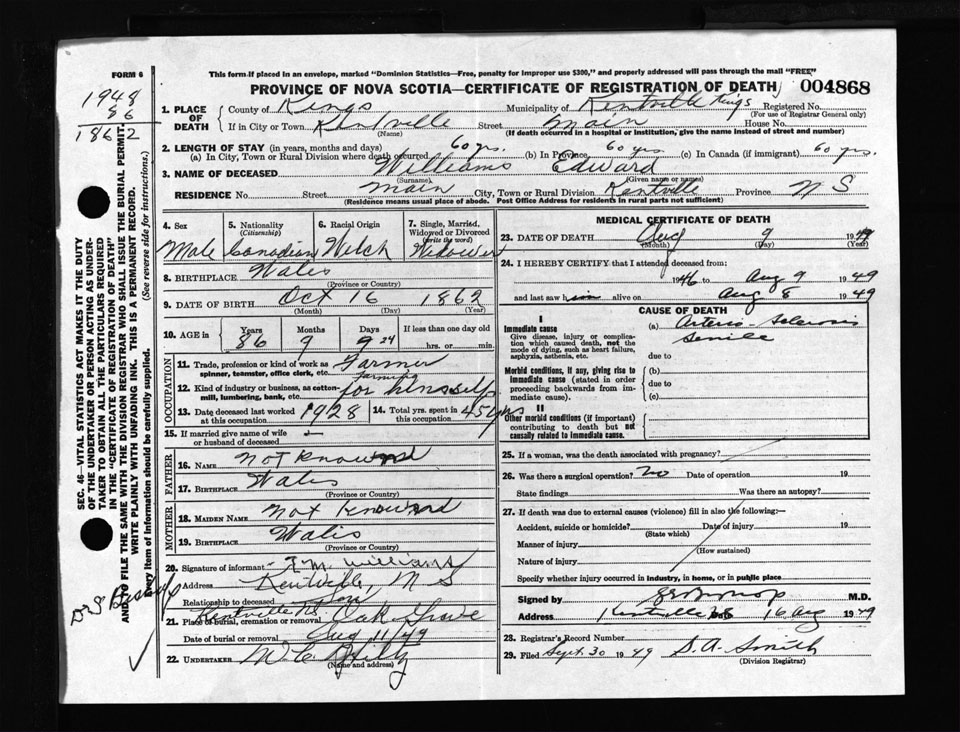 FORM 6
This form if placed in an envelope, marked "Dominion Statistics—Free, penalty for improper use $300," and properly addressed will pass through the mail "FREE"
PROVINCE OF NOVA SCOTIA—CERTIFICATE OF REGISTRATION OF DEATH
004868
1948
86
1862
SEC. 46—VITAL STATISTICS ACT MAKES IT THE DUTY
OF THE UNDERTAKER OR PERSON ACTING AS UNDER-
TAKER TO OBTAIN ALL THE PARTICULARS REQUIRED
IN THE "CERTIFICATE OF REGISTRATION OF DEATH"
AND TO FILE THE SAME WITH THE DIVISION REGISTRAR WHO SHALL ISSUE THE BURIAL PERMIT.
WRITE PLAINLY WITH UNFADING INK. THIS IS A PERMANENT RECORD.
Every item of information should be carefully supplied. (See reverse side for instructions.)
1. PLACE OF DEATH County of Kings Municipality of Kentville Kings Registered No.
(For use of Registrar General only)
If in City or Town Kentville Street Main House No.
(Name) (If death occurred in a hospital or institution, give the name instead of street and number)
2. LENGTH OF STAY (in years, months and days)
(a) In City, Town or Rural Division where death occurred 60 yrs. (b) In Province 60 yrs. (c) In Canada (if immigrant) 60 yrs.
3. NAME OF DECEASED Williams Edward
(Surname) (Given name or names)
RESIDENCE No. Street Main City, Town or Rural Division Kentville Province N S
(Residence means usual place of abode. Post Office Address for residents in rural parts not sufficient)
4. Sex Male
5. Nationality (Citizenship) Canadian
6. Racial Origin Welch
7. Single, Married, Widowed or Divorced (write the word) Widower
8. BIRTHPLACE Wales
(Province or Country)
9. DATE OF BIRTH Oct 16 1862
(Month) (Day) (Year)
10. AGE in Years 86 Months 9 Days 9 24 If less than one day old hrs. or min.
OCCUPATION
11. Trade, profession or kind of work as spinner, teamster, office clerk, etc. Farmer
12. Kind of industry or business, as cotton-mill, lumbering, bank, etc. Farmer for himself
13. Date deceased last worked at this occupation 1928
14. Total yrs. spent in this occupation 45 yrs
15. If married give name of wife or husband of deceased —
FATHER
16. NAME Not Knoward
17. BIRTHPLACE Wales
(Province or Country)
MOTHER
18. MAIDEN NAME Not Knoward
19. BIRTHPLACE Wales
(Province or Country)
20. Signature of informant Williams
Address Kentville, N S
Relationship to deceased Son
21. Place of burial, cremation or removal Kentville NS. Oak Grove
Date of burial or removal Aug 11/49
22. UNDERTAKER
(Name and address)
MEDICAL CERTIFICATE OF DEATH
23. DATE OF DEATH Aug 9 1949
(Month) (Day) (Year)
24. I HEREBY CERTIFY that I attended deceased from:
1946 to Aug 9 1949
and last saw him alive on Aug 8 1949
CAUSE OF DEATH
I
Immediate cause
Give disease, injury or complication which caused death, not the mode of dying, such as heart failure, asphyxia, asthenia, etc.
(a) Arterio-Sclerosis
Senile
due to
Morbid conditions, if any, giving rise to immediate cause (stated in order proceeding backwards from immediate cause).
(b)
due to
(c)
II
Other morbid conditions (if important) contributing to death but not causally related to immediate cause.
25. If a woman, was the death associated with pregnancy?
26. Was there a surgical operation? no Date of operation 19
State findings Was there an autopsy?
27. If death was due to external causes (violence) fill in also the following:—
Accident, suicide or homicide? Date of injury 19
(State which)
Manner of injury
(How sustained)
Nature of injury
Specify whether injury occurred in industry, in home, or in public place
Signed by M.D.
Address Kentville 16 Aug 1949
28. Registrar's Record Number
29. Filed Sept. 30 1949 S. A. Smith
(Division Registrar)